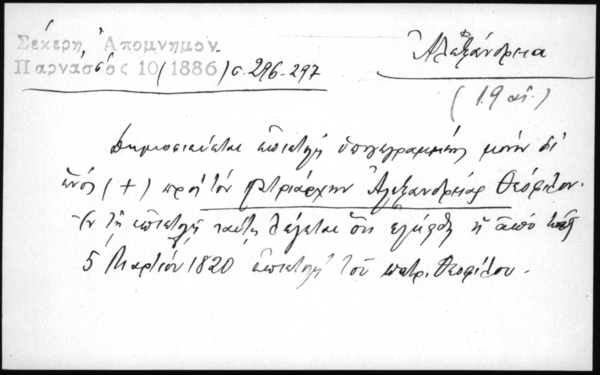 Σέκερη, Ἀπομνημον.
Παρνασσός 10 (1886) σ. 296-297
Ἀλεξάνδρεια
(19 αἰ.)
Δημοσιεύεται ἐπιστολή ὑπογεγραμμένη μόνον δι'
ἑνός (+) πρός τόν πατριάρχην Ἀλεξανδρείας Θεόφιλον.
Ἐν τῇ ἐπιστολῇ ταύτῃ λέγεται ὅτι ἐλήφθη ἡ ἀπό
5 Μαρτίου 1820 ἐπιστολή τοῦ πατρ. Θεοφίλου.